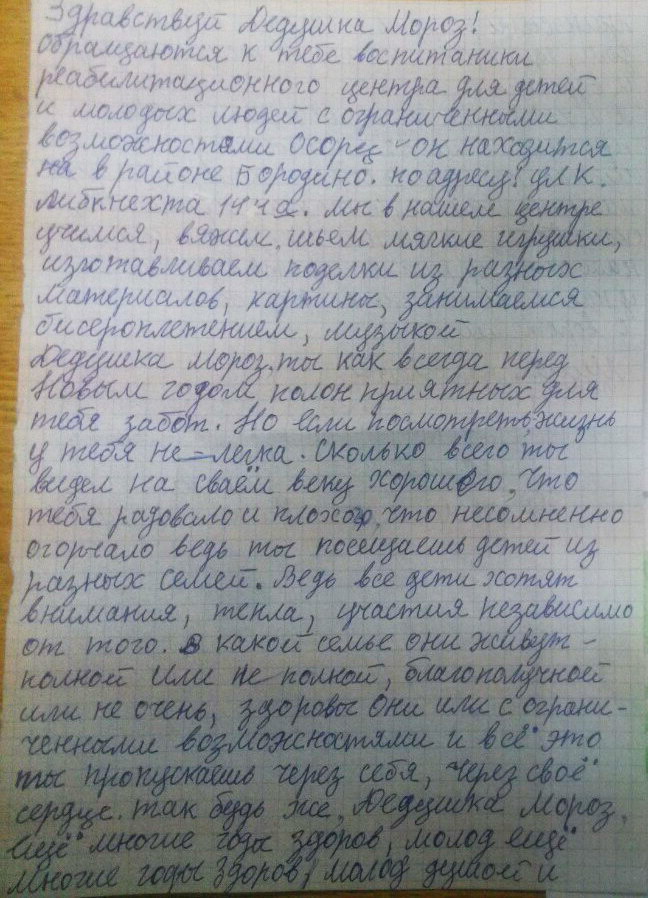 Здравствуй Дедушка Мороз!
Обращаются к тебе воспитаники
реабилитационного центра для детей
и молодых людей с ограниченными
возможностями Осорец - он находится
на в районе Бородино. по адресу! ул К.
Либкнехта 144а. Мы в нашем центре
учимся, вяжем, шьем мягкие игрушки,
изготавливаем поделки из разных
материалов, картины, занимаемся
бисероплетением, музыкой
Дедушка Мороз. ты как всегда перед
Новым годом полон приятных для
тебя забот. Но если посмотреть, жизнь
у тебя не-легка. Сколько всего ты
видел на сваём веку хорошого, что
тебя радовало и плохого, что несомненно
огорчало ведь ты посещаешь детей из
разных семей. Ведь все дети хотят
внимания, тепла, участия независимо
от того. в какой семье они живут -
полной или не полной, благополучной
или не очень, здоровы они или с ограни-
ченными возможностями и всё это
ты пропускаешь через себя, через своё
сердце. так будь же, Дедушка Мороз,
ещё многие годы здоров, молод ещё
многие годы здоров, молод душой и